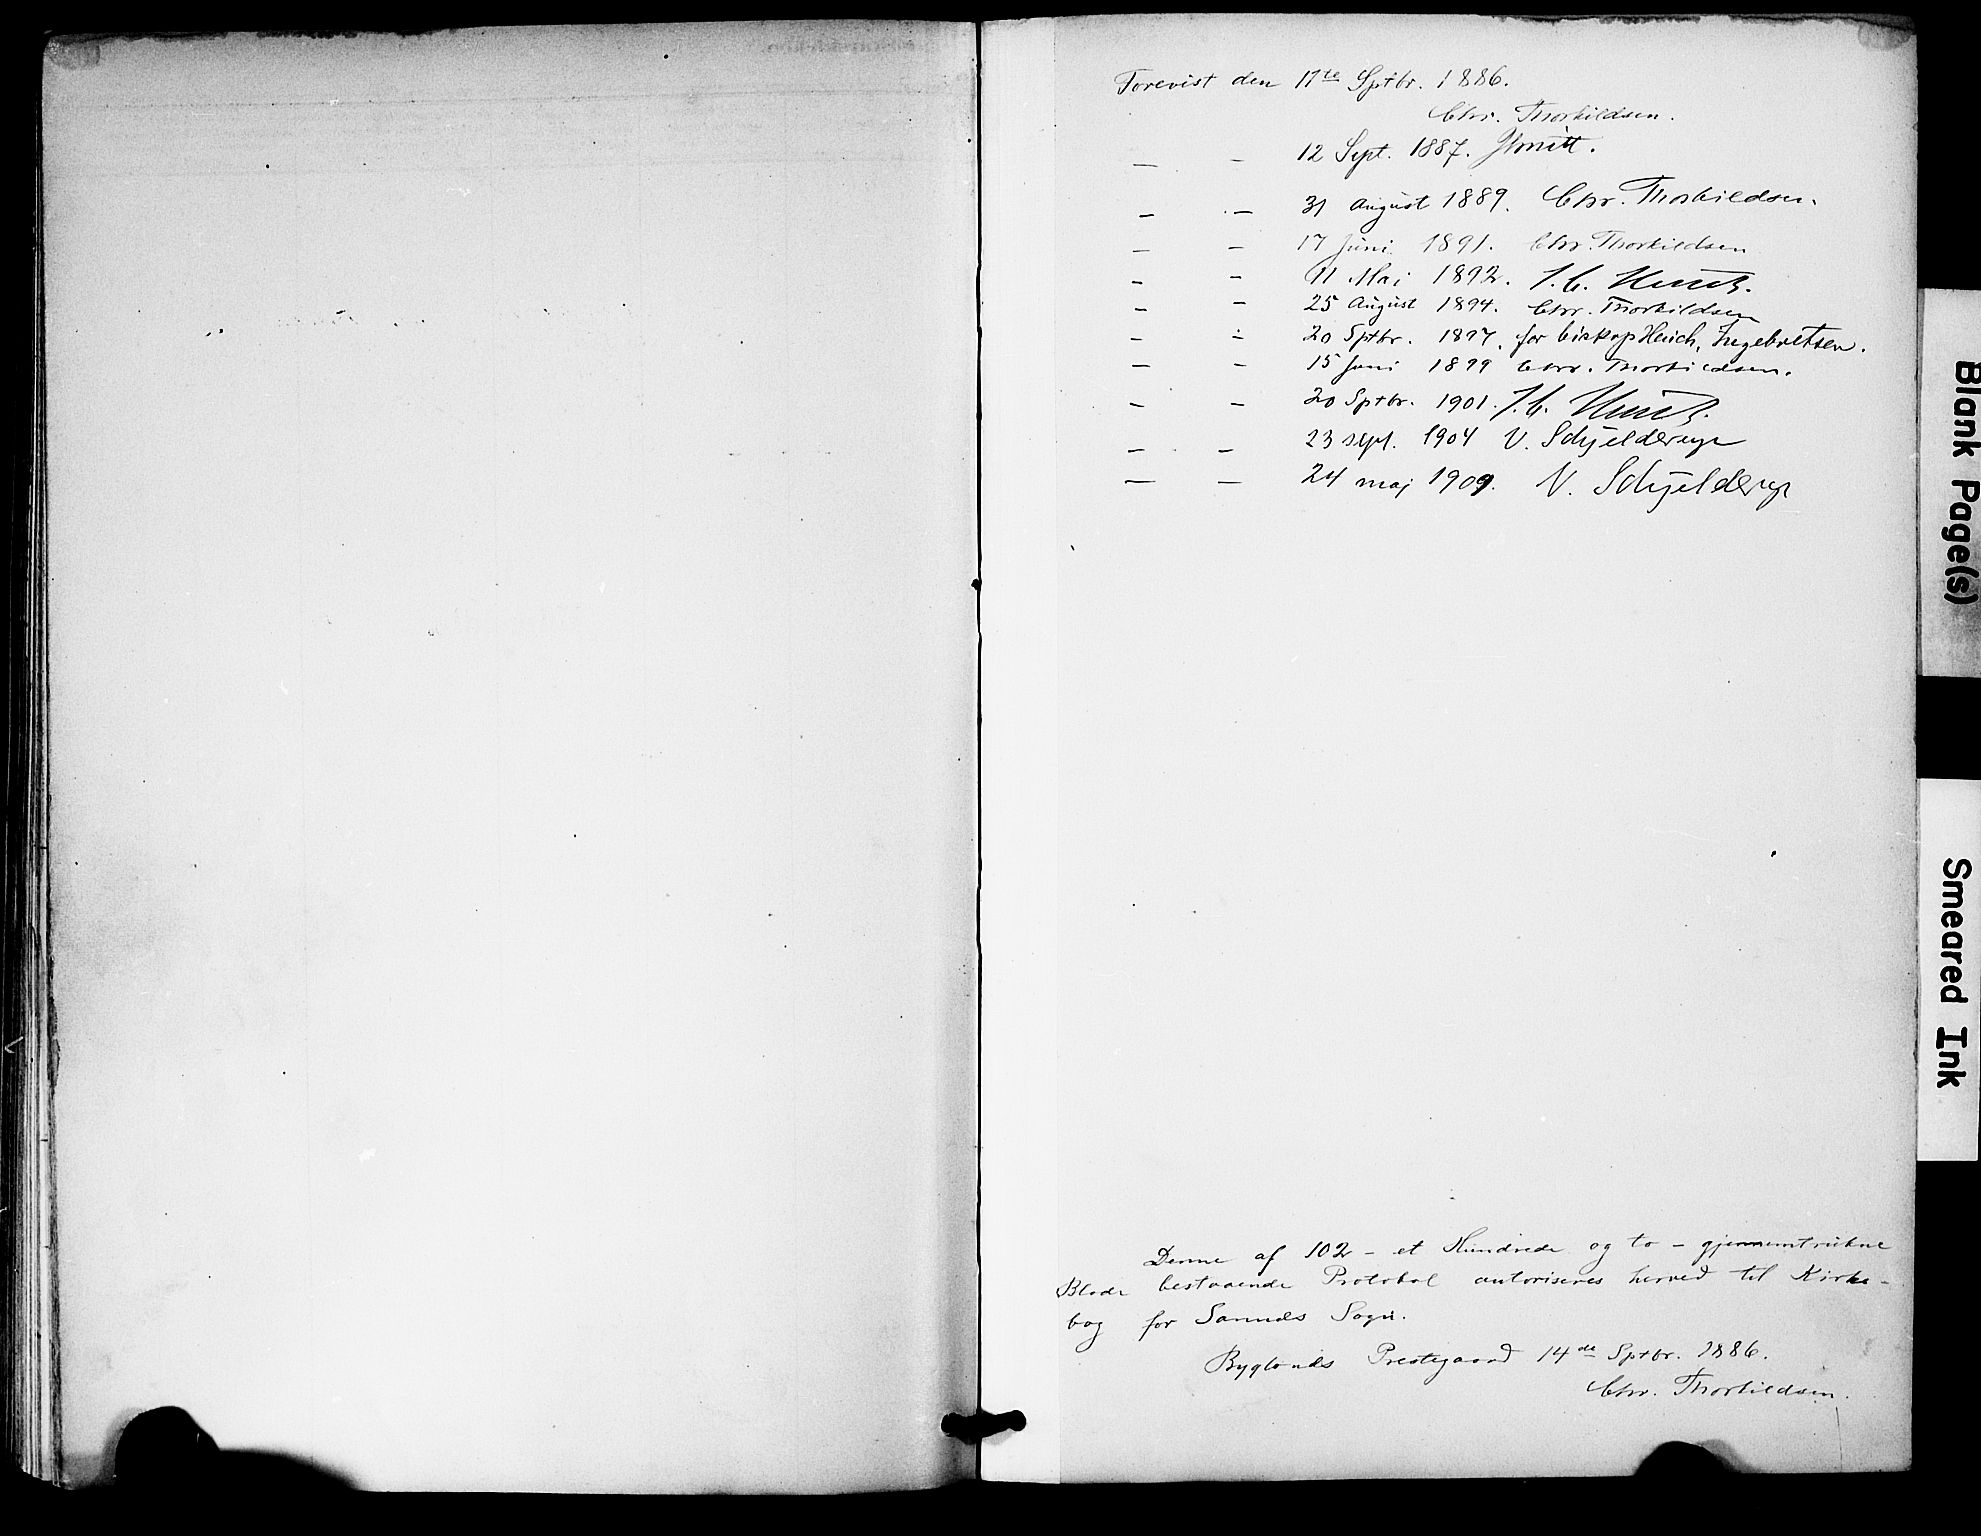 Forevist den 11te Sptbr. 1886.
Chr. Thorkildsen.
— — 12 Sept. 1887.
— — 31 August 1889. Chr. Thorkildsen.
— — 17 Juni 1891. Chr. Thorkildsen
— — 11 Mai 1892. J. C. Heuch.
— — 25 August 1894. Chr. Thorkildsen
— — 20 Sptbr. 1897. for biskop Heuch, Ingebretsen.
— — 15 Juni 1899 Chr. Thorkildsen.
— — 20 Sptbr. 1901. J. C. Heuch.
— — 23 sept. 1904 V. Schjelderup
— — 24 maj 1909. V. Schjelderup
Denne af 102 – et Hundrede og to – gjennemtrukne
Blade bestaaende Protokol autoriseres herved til Kirke-
bog for Sogn.
Byglands Prestegaard 14de Sptbr. 1886.
Chr. Thorkildsen.
Blank Page(s)
Smeared Ink